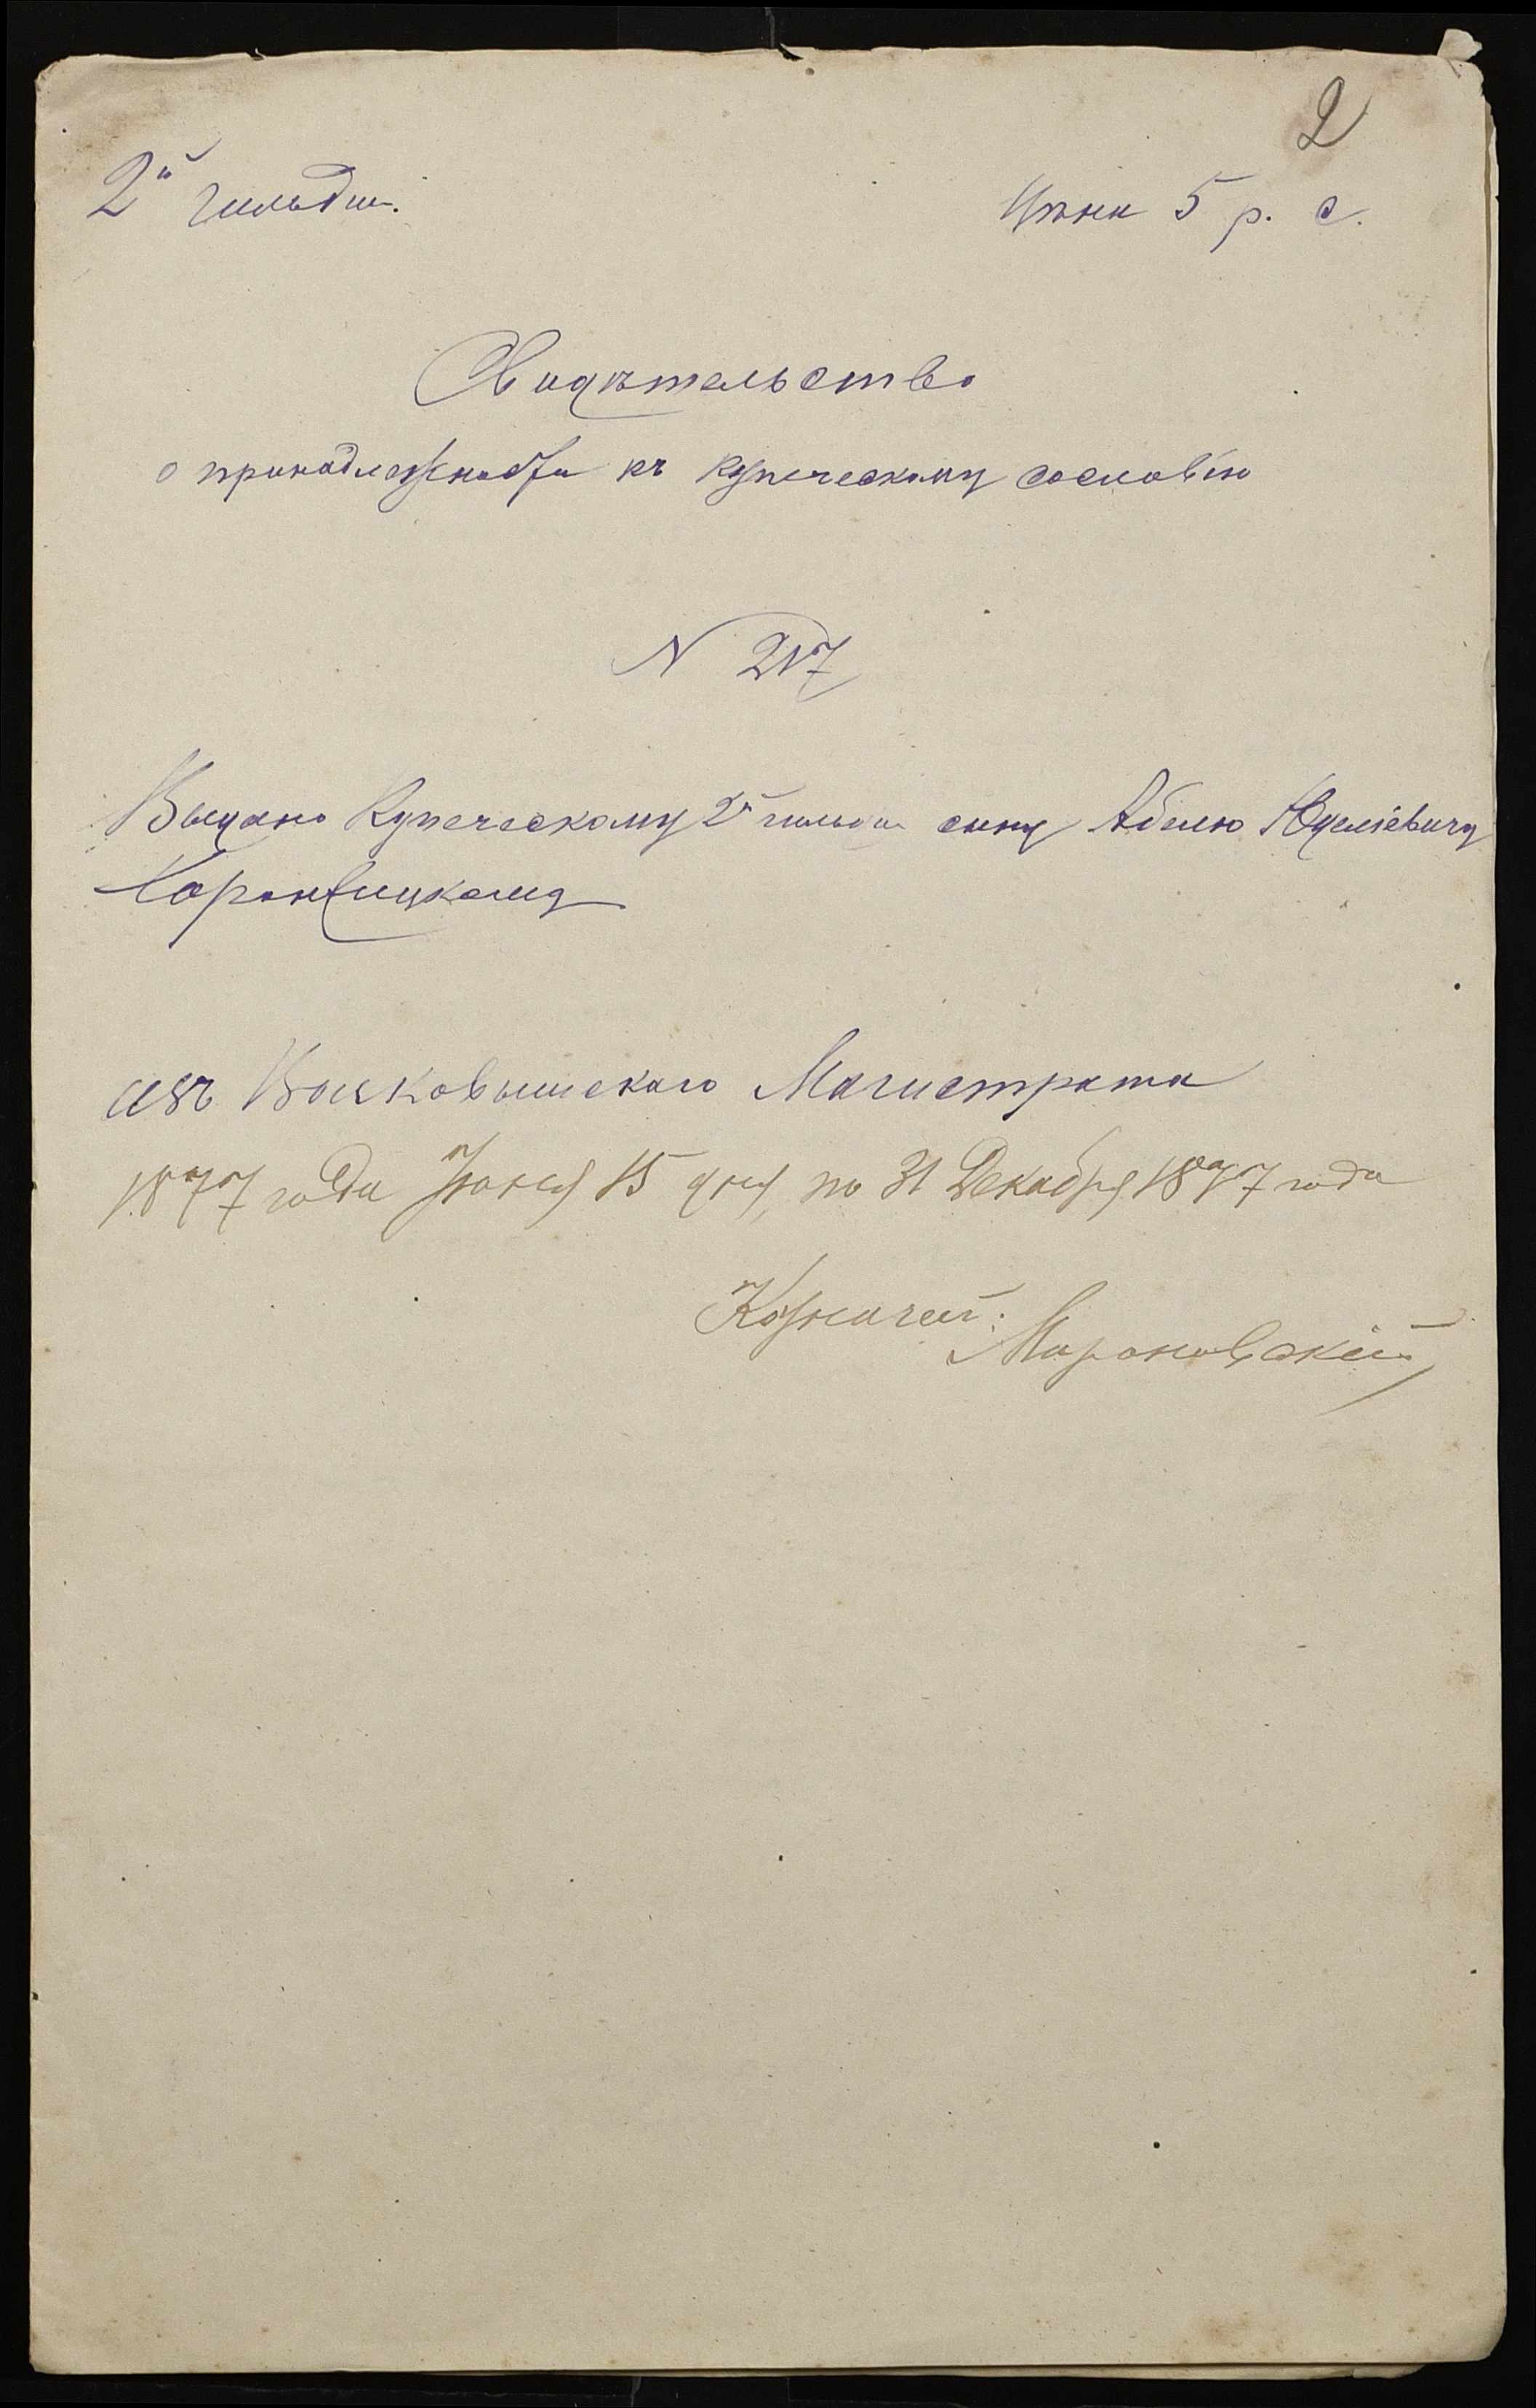 2
2й гильдии. Цѣна 5 р. с.
Свидѣтельство
о принадлежности къ купеческому сословію
N 217
Выдано Купеческому 2й гильдіи сыну Абелю Юделіевичу
изъ Волковышскаго Магистрата
1877 года Іюня 15 дня, по 31 Декабря 1877 года
Казначей: Мароновскій